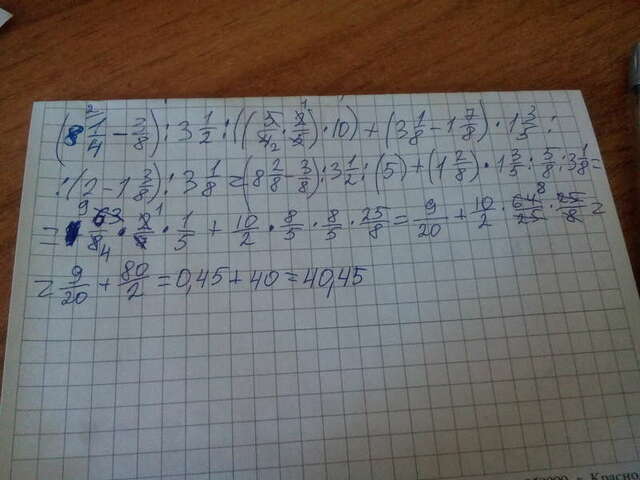 (8 1/4 - 3/8) : 3 1/2 : ((5/4 · 2/2) · 10) + (3 1/8 - 1 7/8) · 1 3/5 :
: (2 - 1 3/8) : 3 1/8 = (8 2/8 - 3/8) : 3 1/2 : (5) + (1 2/8) · 1 3/5 : 5/8 : 3 1/8 =
= 63/8 · 2/7 · 1/5 + 10/2 · 8/5 · 8/5 · 25/8 = 9/20 + 10/2 · 64/25 · 25/8 =
= 9/20 + 80/2 = 0,45 + 40 = 40,45